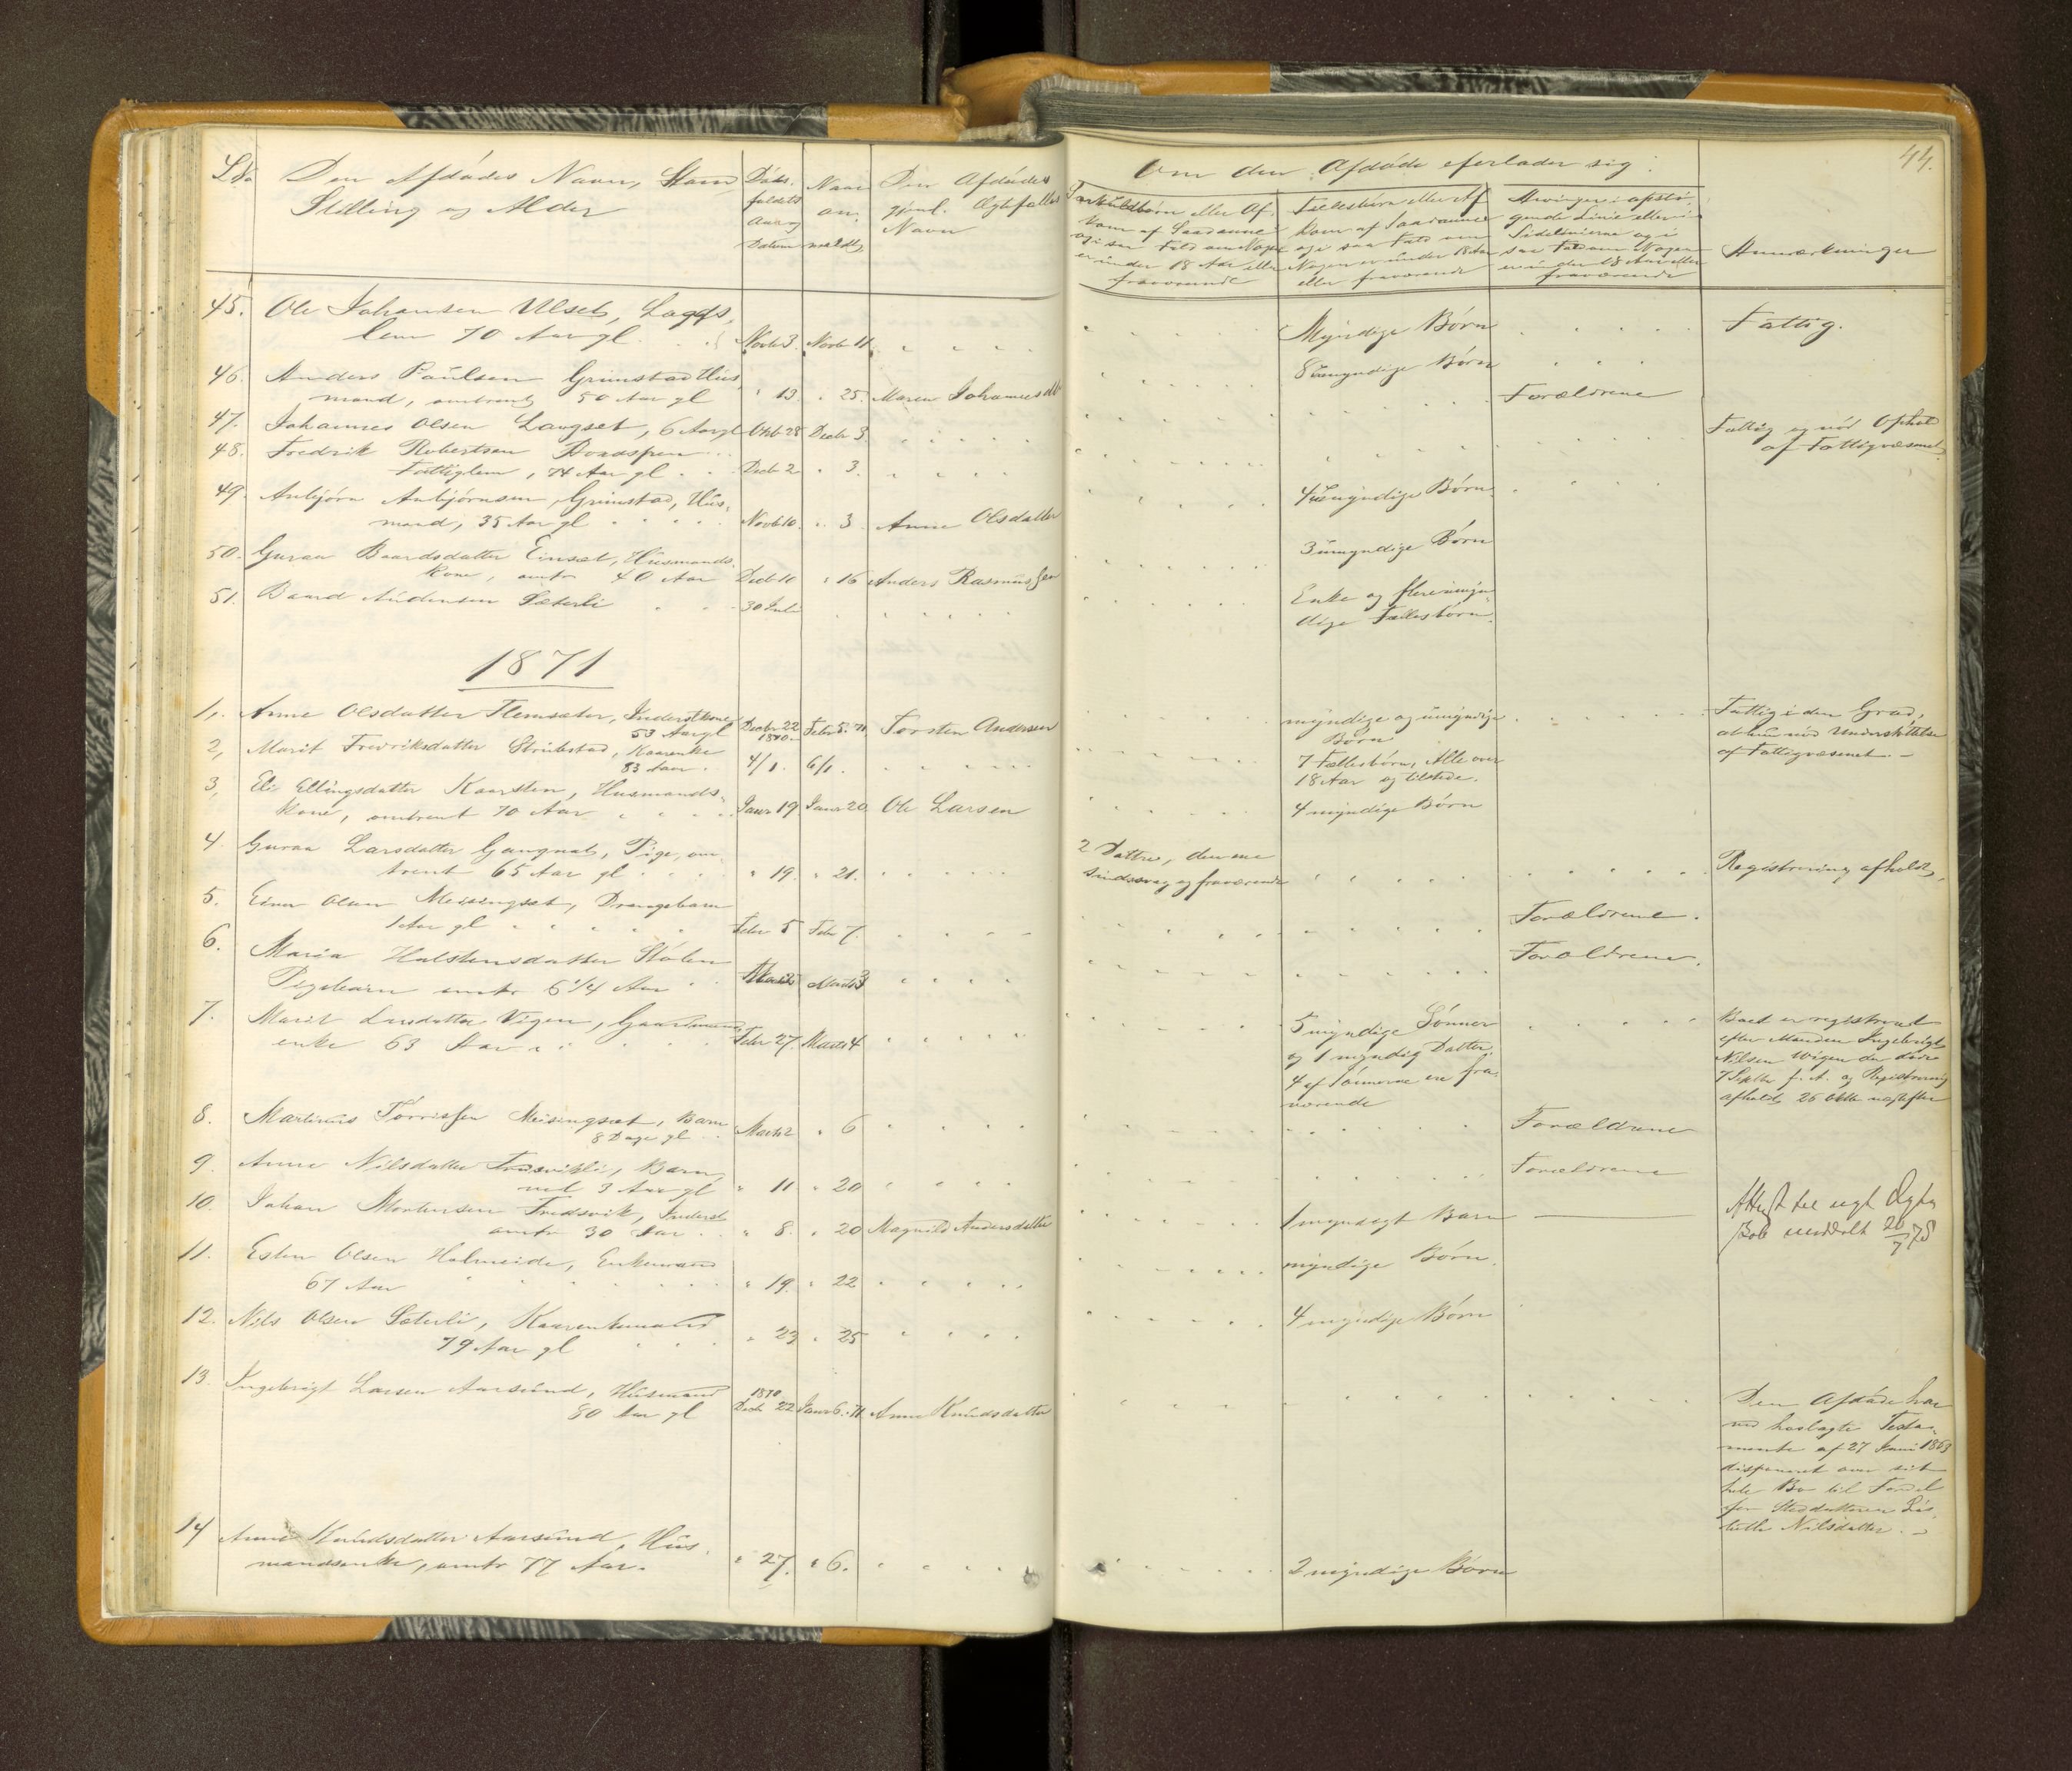 LNo Den Afdødes Navn, Stand Stilling og Alder
Dødsfaldets Aar og Datum
Naar anmeldt
Den Afdødes gjenl. Ægtefælles Navn
Om den Afdøde efterlader sig:
44.
Særkuldbørn eller Afkom af Saadanne og i saa Fald om Nogen er under 18 Aar eller fraværende
Fællesbørn eller Afkom af Saadanne og i saa Fald om Nogen er under 18 Aar eller fraværende
Arvinger i opstigende Linie eller i Sidelinierne og i saa Fald om Nogen er under 18 Aar eller fraværende
Anmærkninger
45. Ole Johansen Ulset, Lægdslem 70 Aar gl. Novb 3. Novb 11 Myndige Børn Fattig.
46. Anders Paulsen Grimstad Husmand, omtrent 50 Aar gl " 13. " 25. Maren Johannesdtr 8 umyndige Børn
47. Johannes Olsen Langset, 6 Aar gl Oktb 28 Decbr 3. Forældrene
48. Fredrik Robertsen Fattiglem, 74 Aar gl Decbr 2 " 3. Fattig og nød Ophold af Fattigvæsenet
49. Anbjørn Anbjørnsen, Grimstad, Husmand, 35 Aar gl Novb 10. " 3 Anne Olsdatter 4 umyndige Børn
50. Guraa Baardsdatter Einset, Husmandskone, omtr 40 Aar Decb 10 " 16 Anders Rasmussen 3 umyndige Børn
51. Baard Audensen Sæterli 30 Juli Enke og flere umyndige Fællesbørn.
1871
1,. Anne Olsdatter Flemsæter, Inderstkone 53 Aar gl Decbr 22 1870 Febr 5. 71 Torsten Andersen myndige og umyndige Børn Fattig i den Grad, at hun nød Understøttelse af Fattigvæsenet. –
2, Marit Fredriksdatter Stribstad, Kaarenke 83 Aar. 4/1. 6/1. 7 Fællesbørn, Alle over 18 Aar og tilstede.
3, Eli Ellingsdatter Kaarsten, Husmandskone, omtrent 70 Aar Janr 19 Janr 20. Ole Larsen 4 myndige Børn
4. Guraa Larsdatter Gangnat, Pige, omtrent 65 Aar gl " 19. " 21. 2 Døttre, den ene sindssvag og fraværende Registrering afholdt.
5. Einer Olsen Meisingset, Drengebarn 1 Aar gl Febr 5 Febr 7. Forældrene.
6. Maria Halstensdatter Stølen Pigebarn omtr 6 1/4 Aar Marts 3 Forældrene.
7. Marit Larsdatter Vigen, Gaardmandsenke 63 Aar Febr 27. Marts 4 5 myndige Sønner og 1 myndig Datter, 4 af Sønnerne ere fraværende Boet er registreret efter Manden Ingebrigt Nilsen Wigen der døde 7 Septbr f. A. og Registrering afholdt 26 Oktbr næstefter
8. Martinus Tørrissen Meisingset, Barn 8 Dage gl Marts 2 " 6 Forældrene
9. Anne Nilsdatter Fredsvikli, Barn ved 3 Aar gl " 11 " 20 Forældrene
10. Johan Mortensen Fredsvik, Inderst omtr 30 Aar " 8. " 20 Magnild Andersdatter 1 myndigt Barn Attest til nyt Ægteskab meddelt 20/7 78
11. Esten Olsen Holmeide, Enkemand 67 Aar " 19. " 22 myndige Børn.
12. Nils Olsen Sæterli, Kaarenkemand 79 Aar gl " 23 " 25 4 myndige Børn
13. Ingebrigt Larsen Aarsund, Husmand 80 Aar gl 1870 Decb 22 Janr 6. 71 Anne Knudsdatter Den Afdøde har ved hoslagte Testamente af 27 Juni 1863 disponeret over sit hele Bo til Fordel for Steddatteren Nilsdatter. –
14 Anne Knudsdatter Aarsund, Husmandsenke, omtr 77 Aar. " 27. " 6. 2 myndige Børn